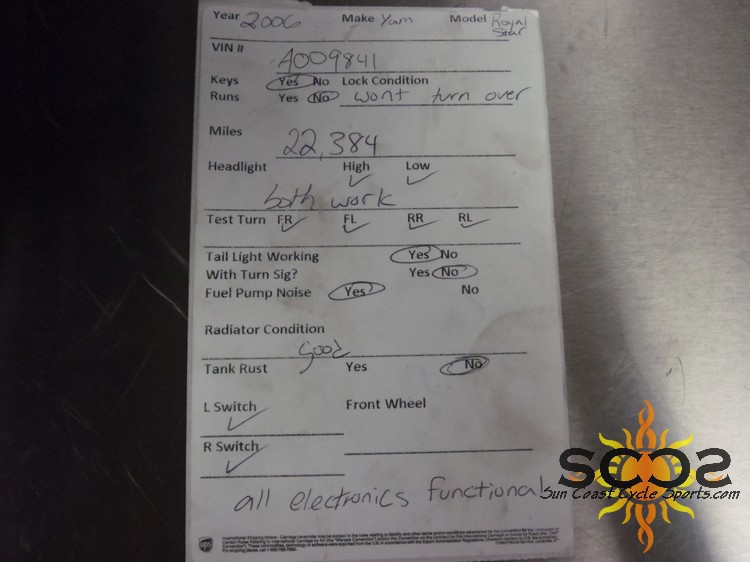 Year 2006 Make Yam Model Royal Star
VIN # A009841
Keys Yes No Lock Condition
Runs Yes No wont turn over
Miles 22,384
Headlight High Low
both work
Test Turn FR FL RR RL
Tail Light Working Yes No
With Turn Sig? Yes No
Fuel Pump Noise Yes No
Radiator Condition
good
Tank Rust Yes No
L Switch Front Wheel
R Switch
all electronics functional
SCCS
Sun Coast Cycle Sports.com